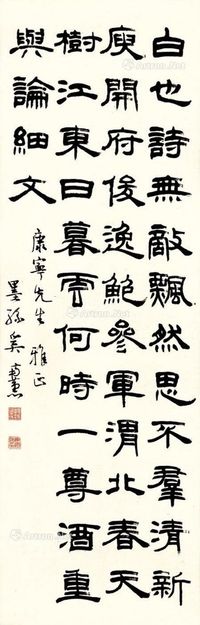 白也詩無敵飄然思不羣清新
庾開府俊逸鮑參軍渭北春天
樹江東日暮雲何時一尊酒重
與論細文
康寧先生 雅正
Artron.Net